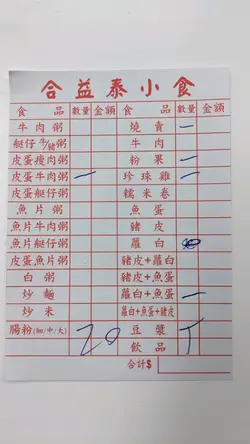 合益泰小食
食品 數量 金額 食品 數量 金額
牛肉粥 燒賣 一
艇仔 粥 牛肉
皮蛋瘦肉粥 粉果 一
皮蛋牛肉粥 一 珍珠雞 一
皮蛋艇仔粥 糯米卷
魚片粥 魚蛋
魚片牛肉粥 豬皮
魚片艇仔粥 蘿白
皮蛋魚片粥 豬皮+蘿白
白粥 豬皮+魚蛋
炒麵 蘿白+魚蛋 一
炒米 蘿白+魚蛋+豬皮
腸粉(細/中/大) 20 豆漿 T
飲品
合計$